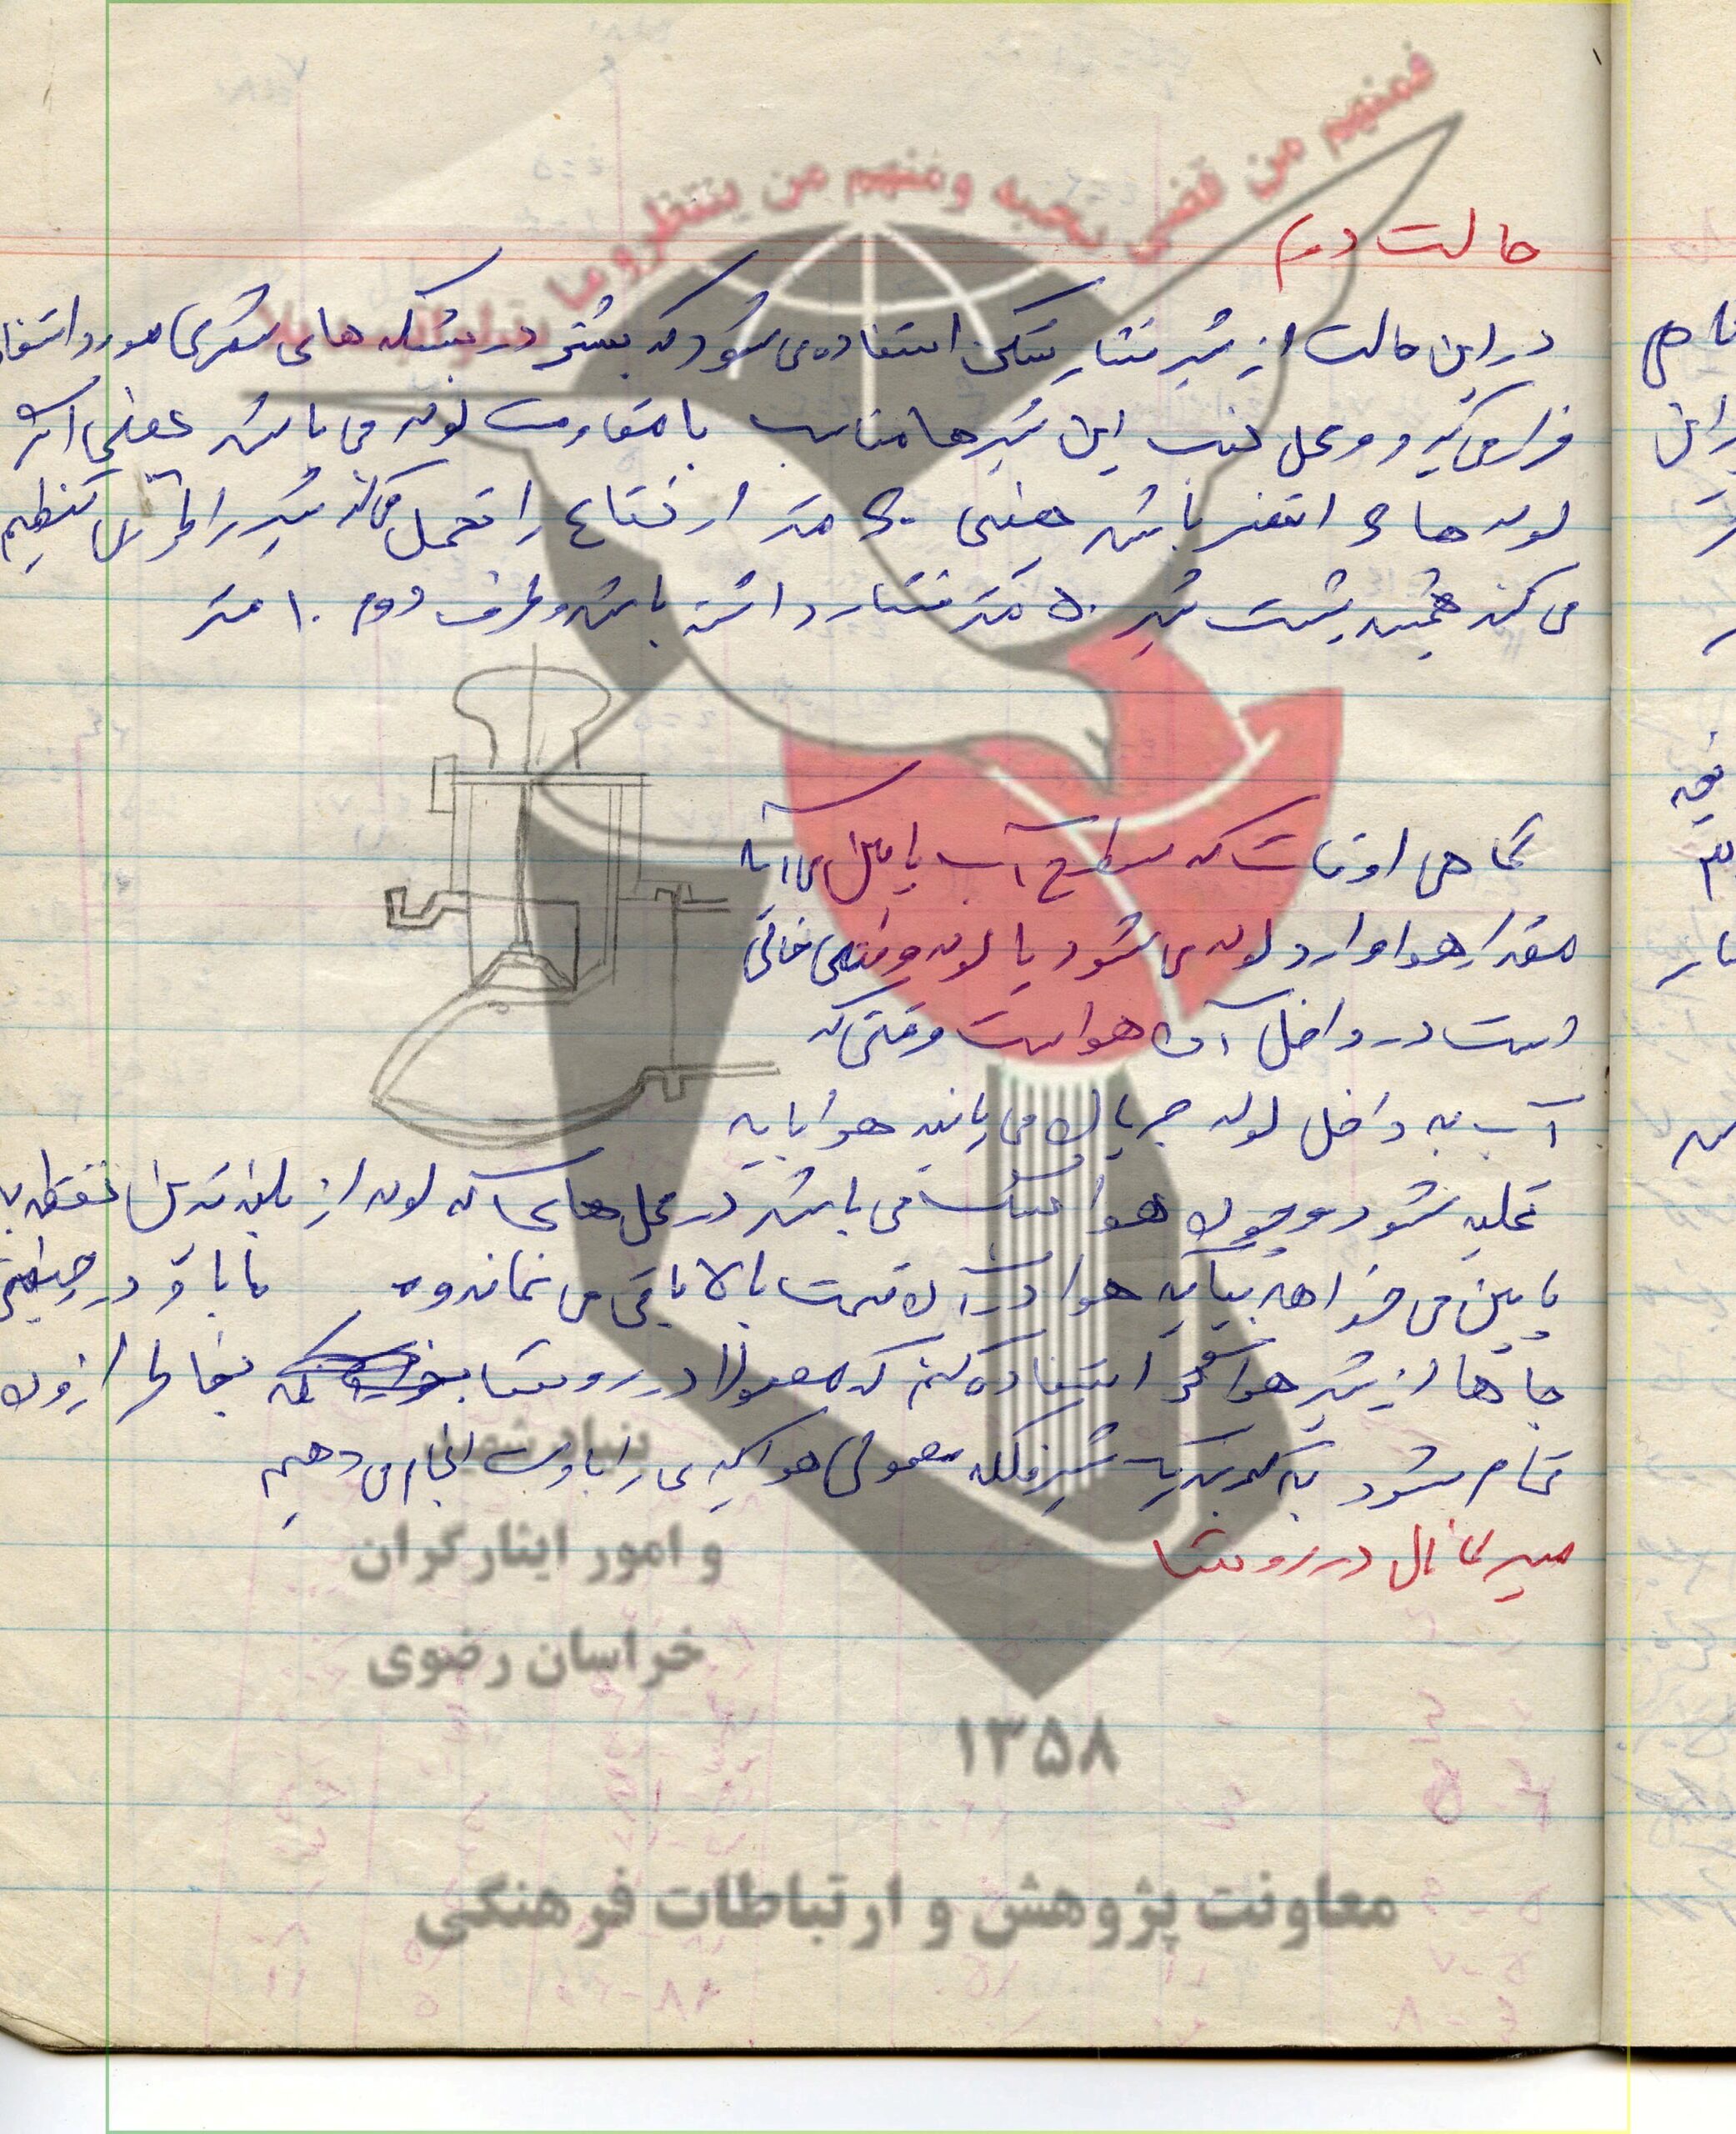 فمنهم من قضی نحبه ومنهم من ینتظر وما بدلوا تبدیلا
حالت دوم
در این حالت از شیر فشار شکن استفاده می شود که بیشتر در شبکه های شهری مورد استفاده
قرار می گیرد و محل نصب این شیرها متناسب با مقاومت لوله می باشد یعنی اگر
لوله ها ۶ اتمسفر باشد یعنی ۶۰ متر ارتفاع را تحمل می کند شیر را طوری تنظیم
می کنند همیشه پشت شیر ۵۰ متر فشار داشته باشد و طرف دوم ۱۰ متر
گاهی اوقات که سطح آب پایین می آید
مقدار هوا وارد لوله می شود یا لوله وقتی خالی
است در داخل آن هواست وقتی که
آب به داخل لوله جریان می یابد هوا باید
تخلیه شود و چون هوا سبک می باشد در محل هایی که لوله از بلندترین نقطه به
پایین می خواهد بیاید هوا در آن قسمت بالا باقی می ماند و ما باید در چنین
جاها از شیر هواگیر استفاده کنیم که معمولا در روستا بخاطر ارزون
تمام شود به کمربند یک شیر فلکه معمولی هواگیری را با دست انجام می دهیم
مسیر کانال در روستا
بنیاد شهید
و امور ایثارگران
خراسان رضوی
۱۳۵۸
معاونت پژوهش و ارتباطات فرهنگی